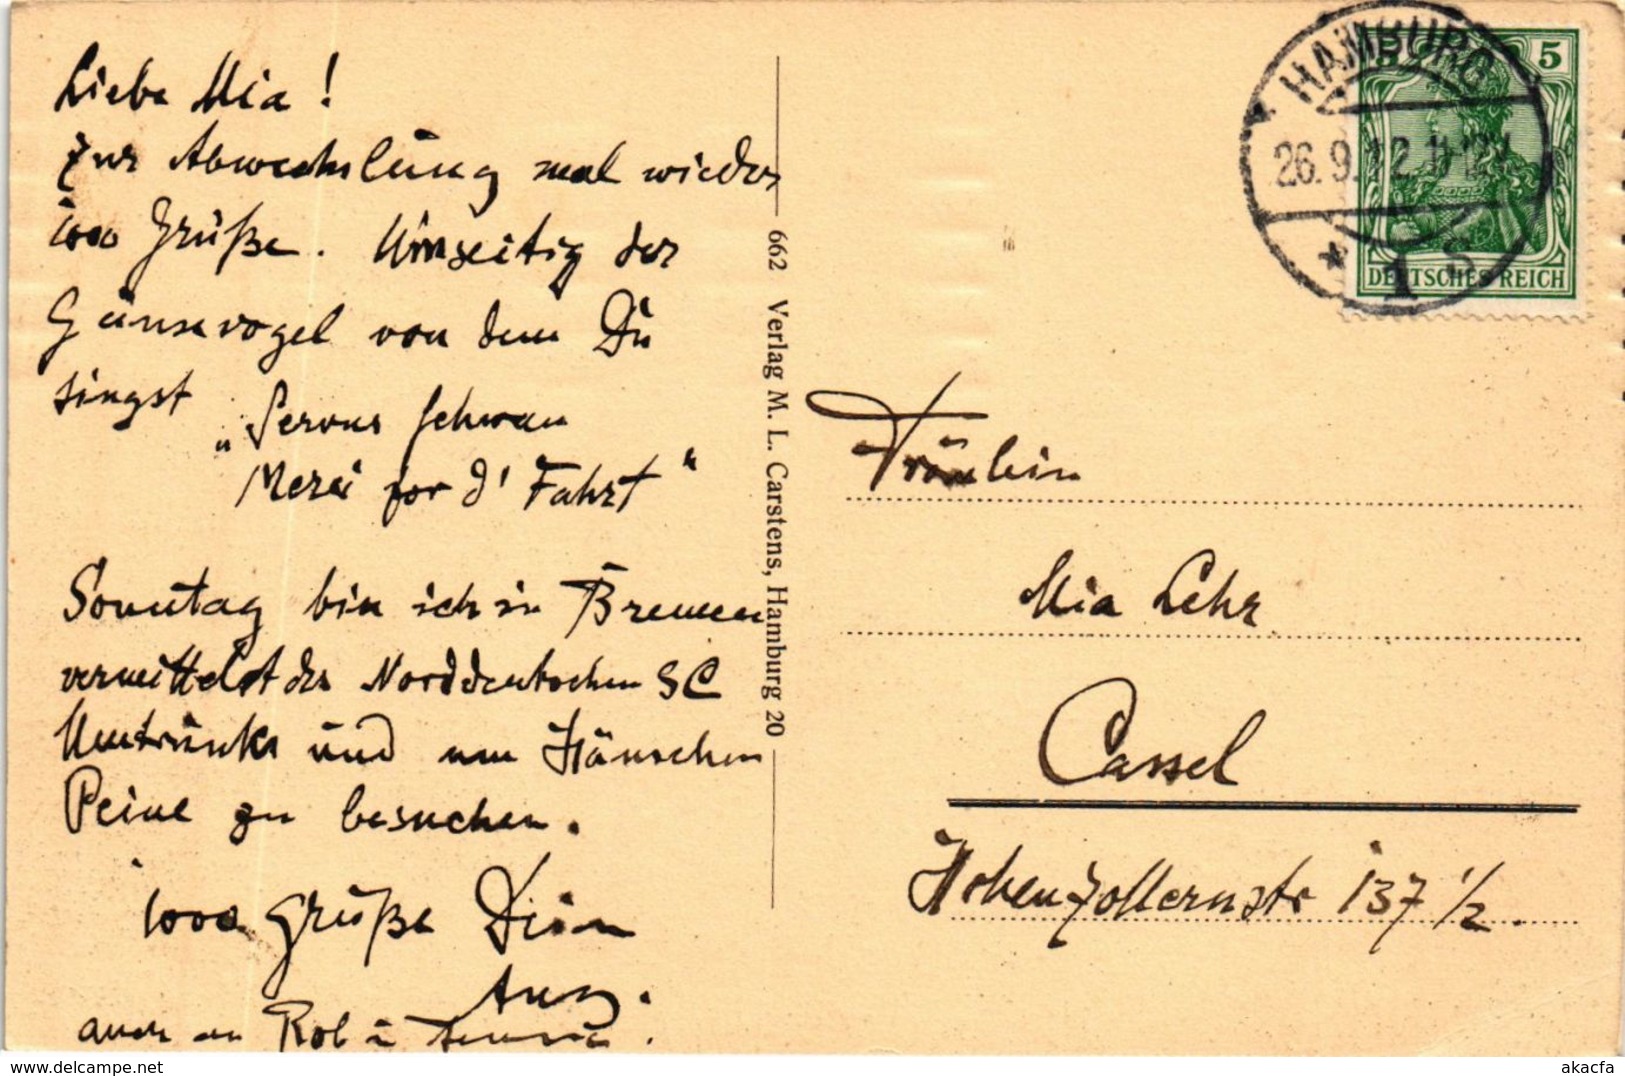 Liebe Mia!
Zur Abwechslung mal wieder
1000 Grüße. Umseitig der
Gänsevogel von dem Du
singst
„Servus Schwan
Merci for d' Fahrt"
Sonntag bin ich in Bremen
vermittelst des Norddeutschen SC
Umtrunks und um Hänschen
Peine zu besuchen.
1000 Grüße Dein
Aug.
auch an Rob u
662 Verlag M. L. Carstens, Hamburg 20
HAMBURG
26.9.12
* 1
5
DEUTSCHES REICH
Fräulein
Mia Lehr
Cassel
Hohenzollernstr 137 1/2.
akacfa